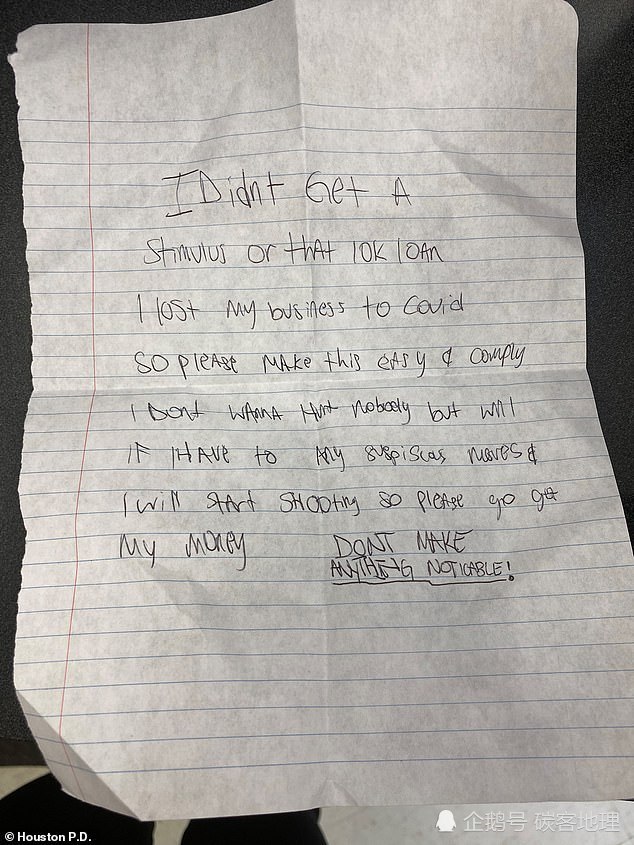 I Didnt Get A
Stimulus or that 10K loan
I lost my business to Covid
So please make this easy & comply
I Dont wanna Hurt nobody but will
if I Have to Any suspiscas moves &
I will start shooting so please go get
My Money
DONT MAKE
ANYTHING NOTICABLE!
© Houston P.D.
企鹅号 碳客地理